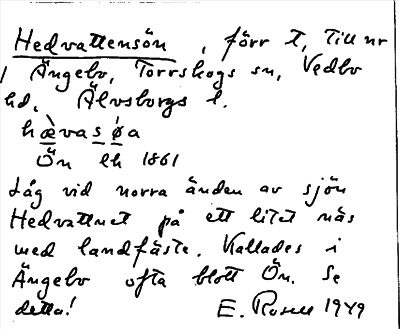 Hedvattensön, förr t, till nr
1 Ängebo, Torrskogs sn, Vedbo
hd, Älvsborgs l.
hæ̀vasǿa
Ön lh 1861
Låg vid norra änden av sjön
Hedvattnet på ett litet näs
med landfäste. Kallades i
Ängebo ofta blott Ön. Se
detta! E. Rosell 1949